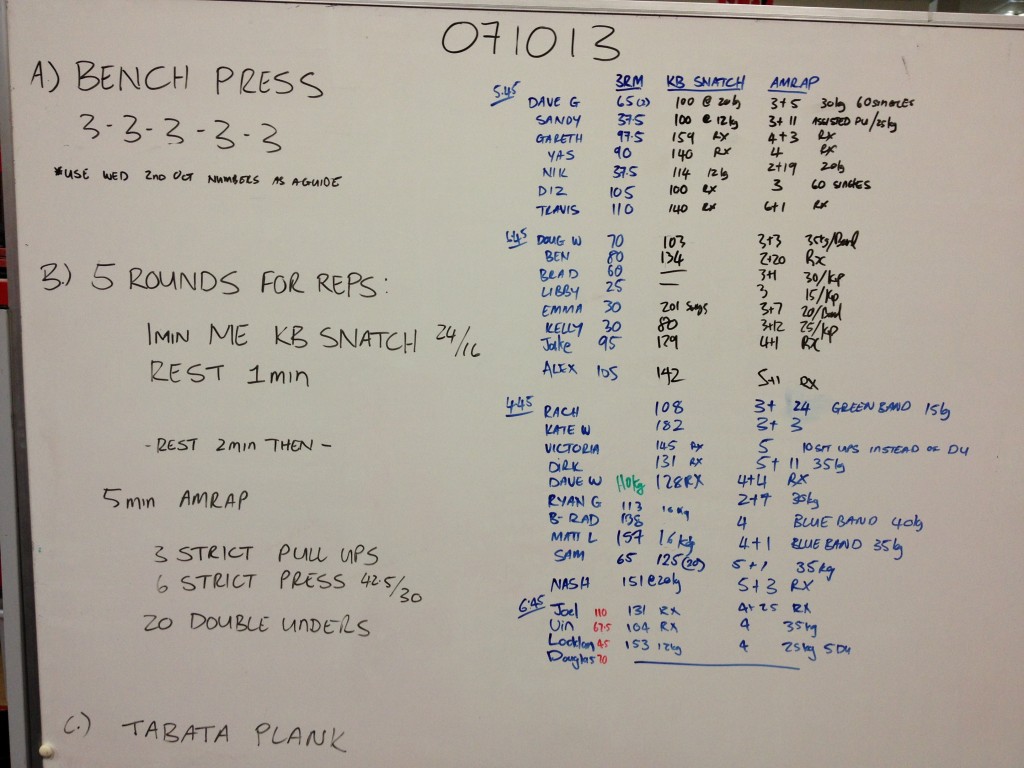 071013
A) BENCH PRESS
3-3-3-3-3
*USE WED 2ND OCT NUMBERS AS A GUIDE
B.) 5 ROUNDS FOR REPS:
1MIN ME KB SNATCH 24/16
REST 1min
- REST 2MIN THEN -
5min AMRAP
3 STRICT PULL UPS
6 STRICT PRESS 42.5/30
20 DOUBLE UNDERS
C.) TABATA PLANK
3RM KB SNATCH AMRAP
5.45 DAVE G 65(2) 100 @ 20kg 3+5 30kg 60 SINGLES
SANDY 37.5 100 @ 12kg 3+11 ASSISTED PU/25kg
GARETH 97.5 159 RX 4+3 RX
YAS 90 140 RX 4 RX
NIK 37.5 114 12kg 2+19 20kg
DIZ 105 100 RX 3 60 SINGLES
TRAVIS 110 140 RX 6+1 RX
6.45 DOUG W 70 103 3+3
BEN 80 134 2+20 RX
BRAD 60 — 3+1 30/Kip
LIBBY 25 — 3 15/Kip
EMMA 30 201 Swgs 3+7 20/Band
KELLY 30 80 3+12 25/Kip
Jake 95 129 4+1 RX
ALEX 105 142 5+11 RX
4.45 RACH 108 3+ 24 GREEN BAND 15kg
KATE W 182 3+ 3
VICTORIA 145 RX 5 10 SIT UPS INSTEAD OF DU
DIRK 131 RX 5+ 11 35kg
DAVE W 110kg 128 RX 4+4 RX
RYAN G 113 16kg 2+9 35kg
B-RAD 138 4 BLUE BAND 40kg
MATT L 157 16kg 4+1 BLUE BAND 35kg
SAM 65 125(20) 5+1 35kg
NASH 151 @ 20kg 5+3 RX
6:45 Joel 110 131 RX 4+25 RX
Vin 67.5 104 RX 4 35kg
Locklan 45 153 12kg 4 25kg 5DU
Douglas 70